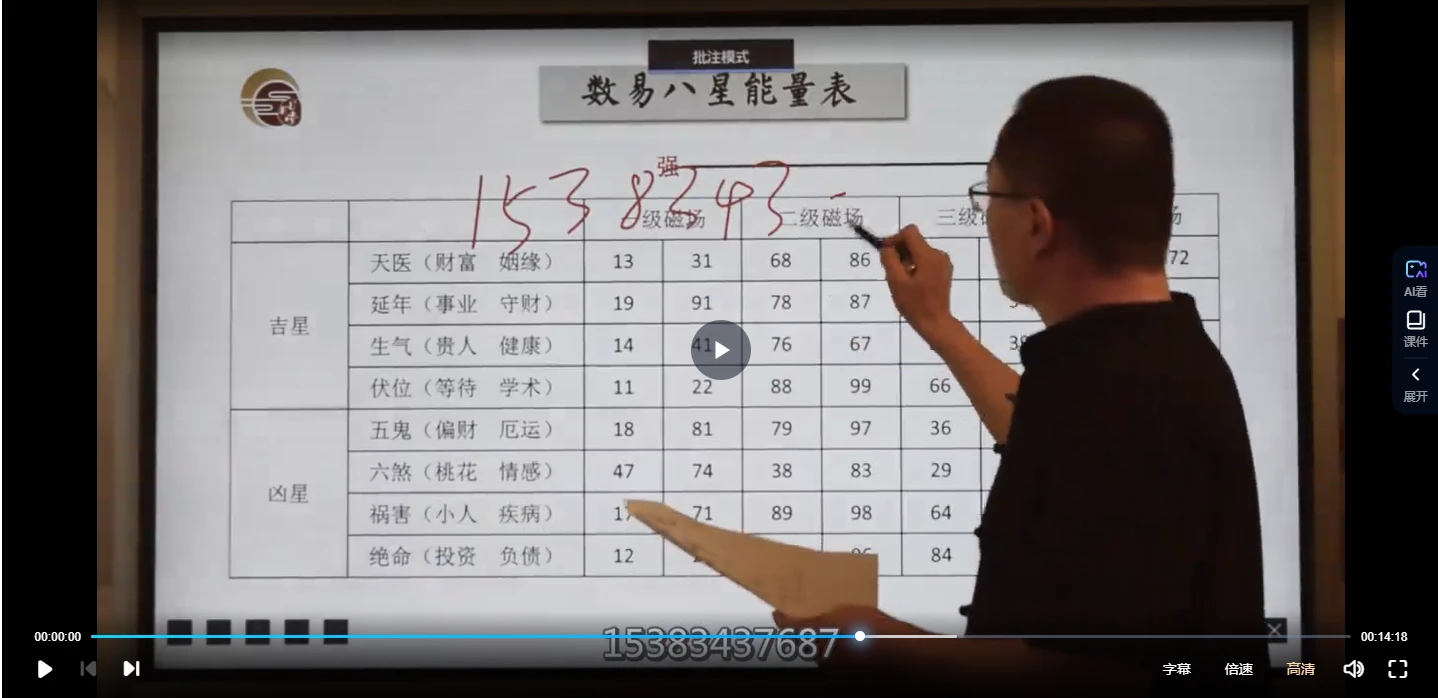 批注模式
数易八星能量表
强
1538343
级磁场 二级磁场 三级 场
吉星
天医（财富 姻缘） 13 31 68 86 72
延年（事业 守财） 19 91 78 87
生气（贵人 健康） 14 41 76 67
伏位（等待 学术） 11 22 88 99 66
凶星
五鬼（偏财 厄运） 18 81 79 97 36
六煞（桃花 情感） 47 74 38 83 29
祸害（小人 疾病） 17 71 89 98 64
绝命（投资 负债） 12 84
AI看
课件
展开
15383437687
00:00:00 00:14:18
字幕 倍速 高清